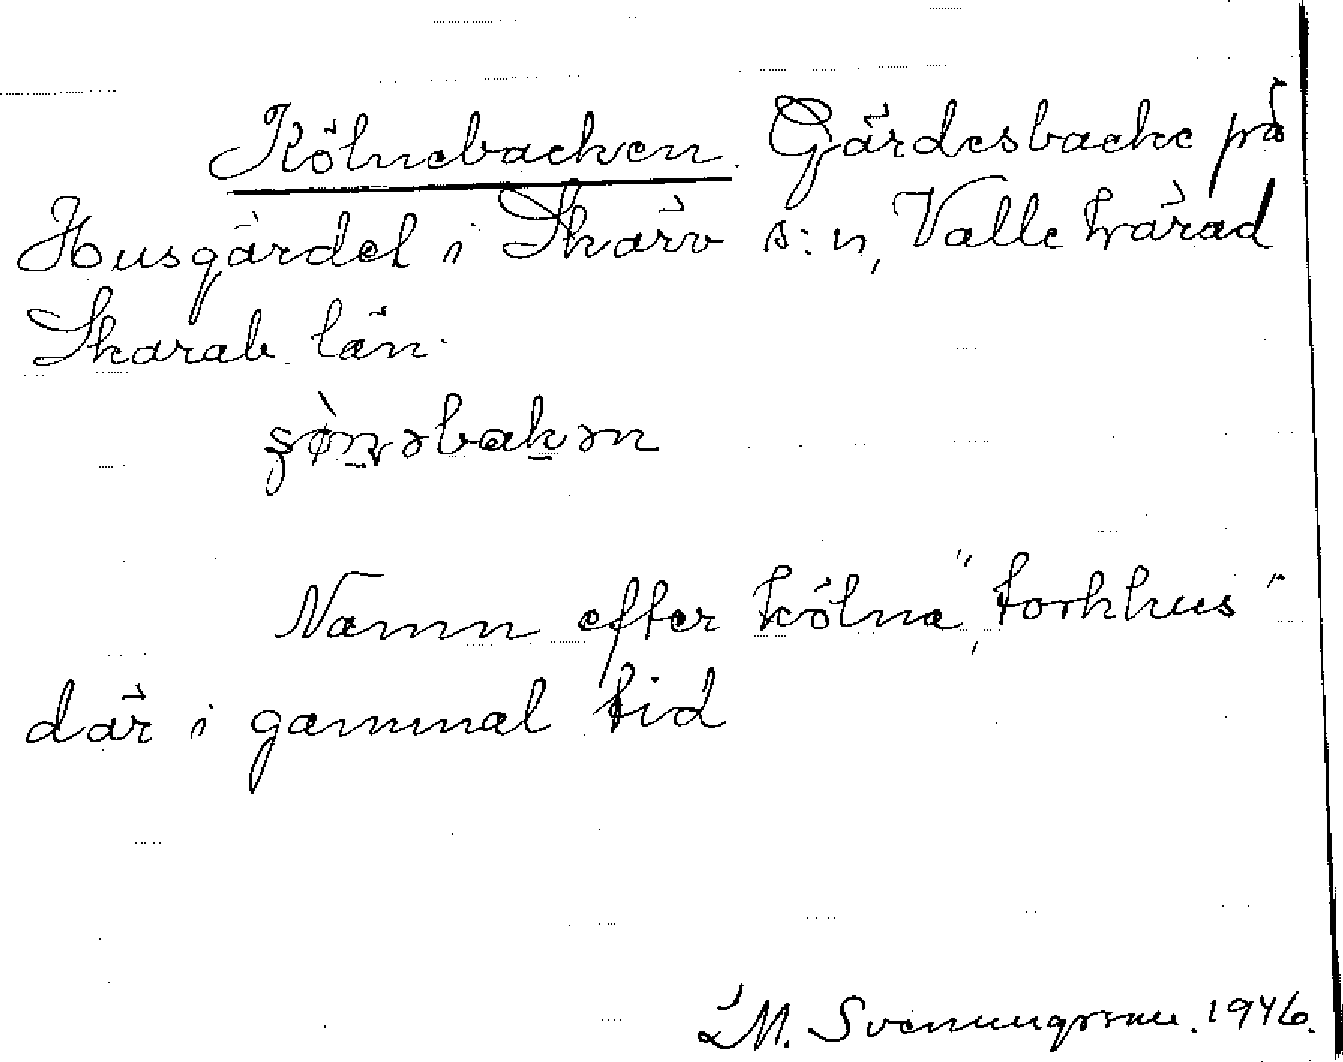 Kölnebacken. Gärdesbacke på
Husgärdet i Skärv s:n, Valle härad
Skarab. län.
Namn efter kölna", torkhus"
där i gammal tid
M. Svenungsson. 1946.